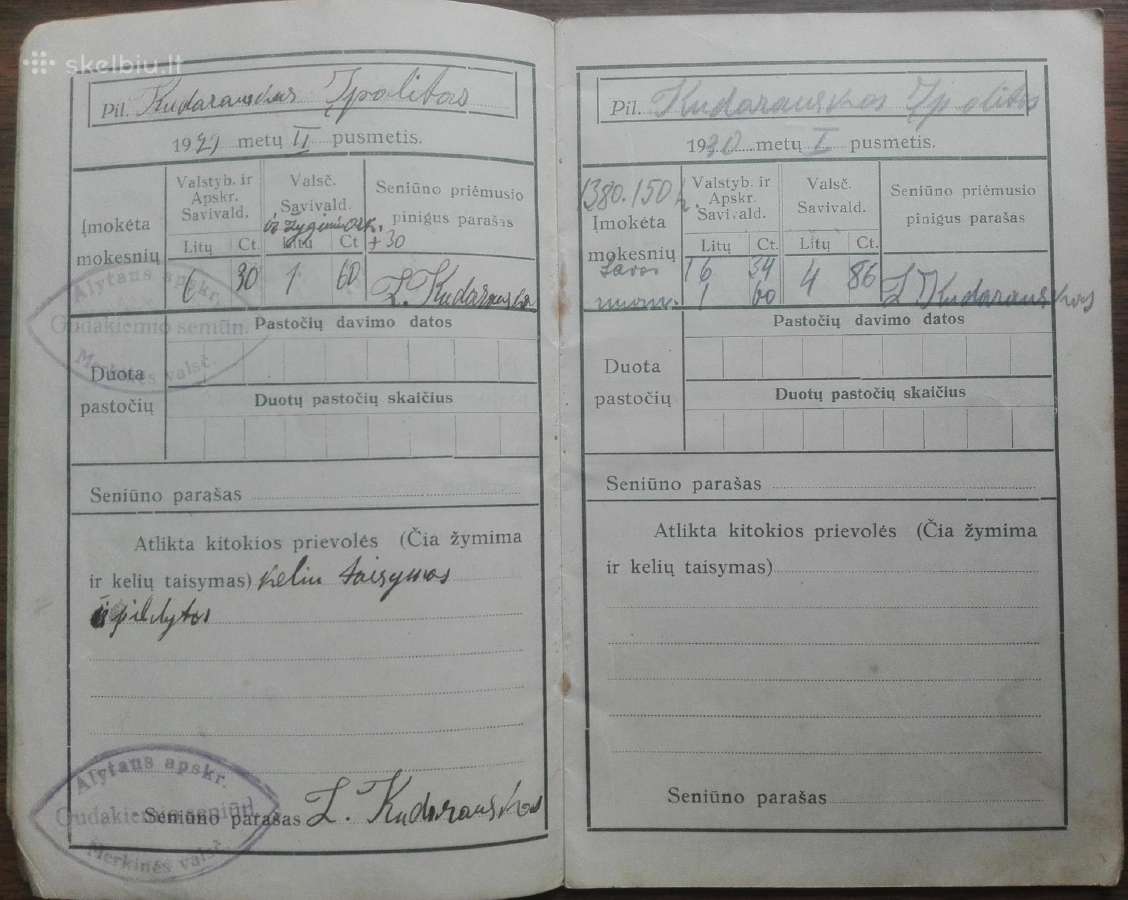 skelbiu.lt
Pil. Kudarauskas Ipolitas
1929 metų II pusmetis.
Įmokėta mokesnių
Valstyb. ir Apskr. Savivald.
Valsč. Savivald.
Seniūno priėmusio pinigus parašas
Litų Ct. Litų Ct +30
6 30 1 60 L. Kudarauskas
Alytaus apskr.
Gudakiemio seniūn.
Merkinės valsč.
Duota pastočių
Pastočių davimo datos
Duotų pastočių skaičius
Seniūno parašas
Atlikta kitokios prievolės (Čia žymima
ir kelių taisymas) keliu taisymas
išpildytas
Alytaus apskr.
Gudakiemio seniūn.
Merkinės valsč.
Seniūno parašas L. Kudarauskas
Pil. Kudarauskas Ipolitas
1930 metų I pusmetis.
1380.150
Įmokėta mokesnių
Valstyb. ir Apskr. Savivald.
Valsč. Savivald.
Seniūno priėmusio pinigus parašas
Litų Ct. Litų Ct.
16 54 4 86 L. Kudarauskas
1 60
Duota pastočių
Pastočių davimo datos
Duotų pastočių skaičius
Seniūno parašas
Atlikta kitokios prievolės (Čia žymima
ir kelių taisymas)
Seniūno parašas